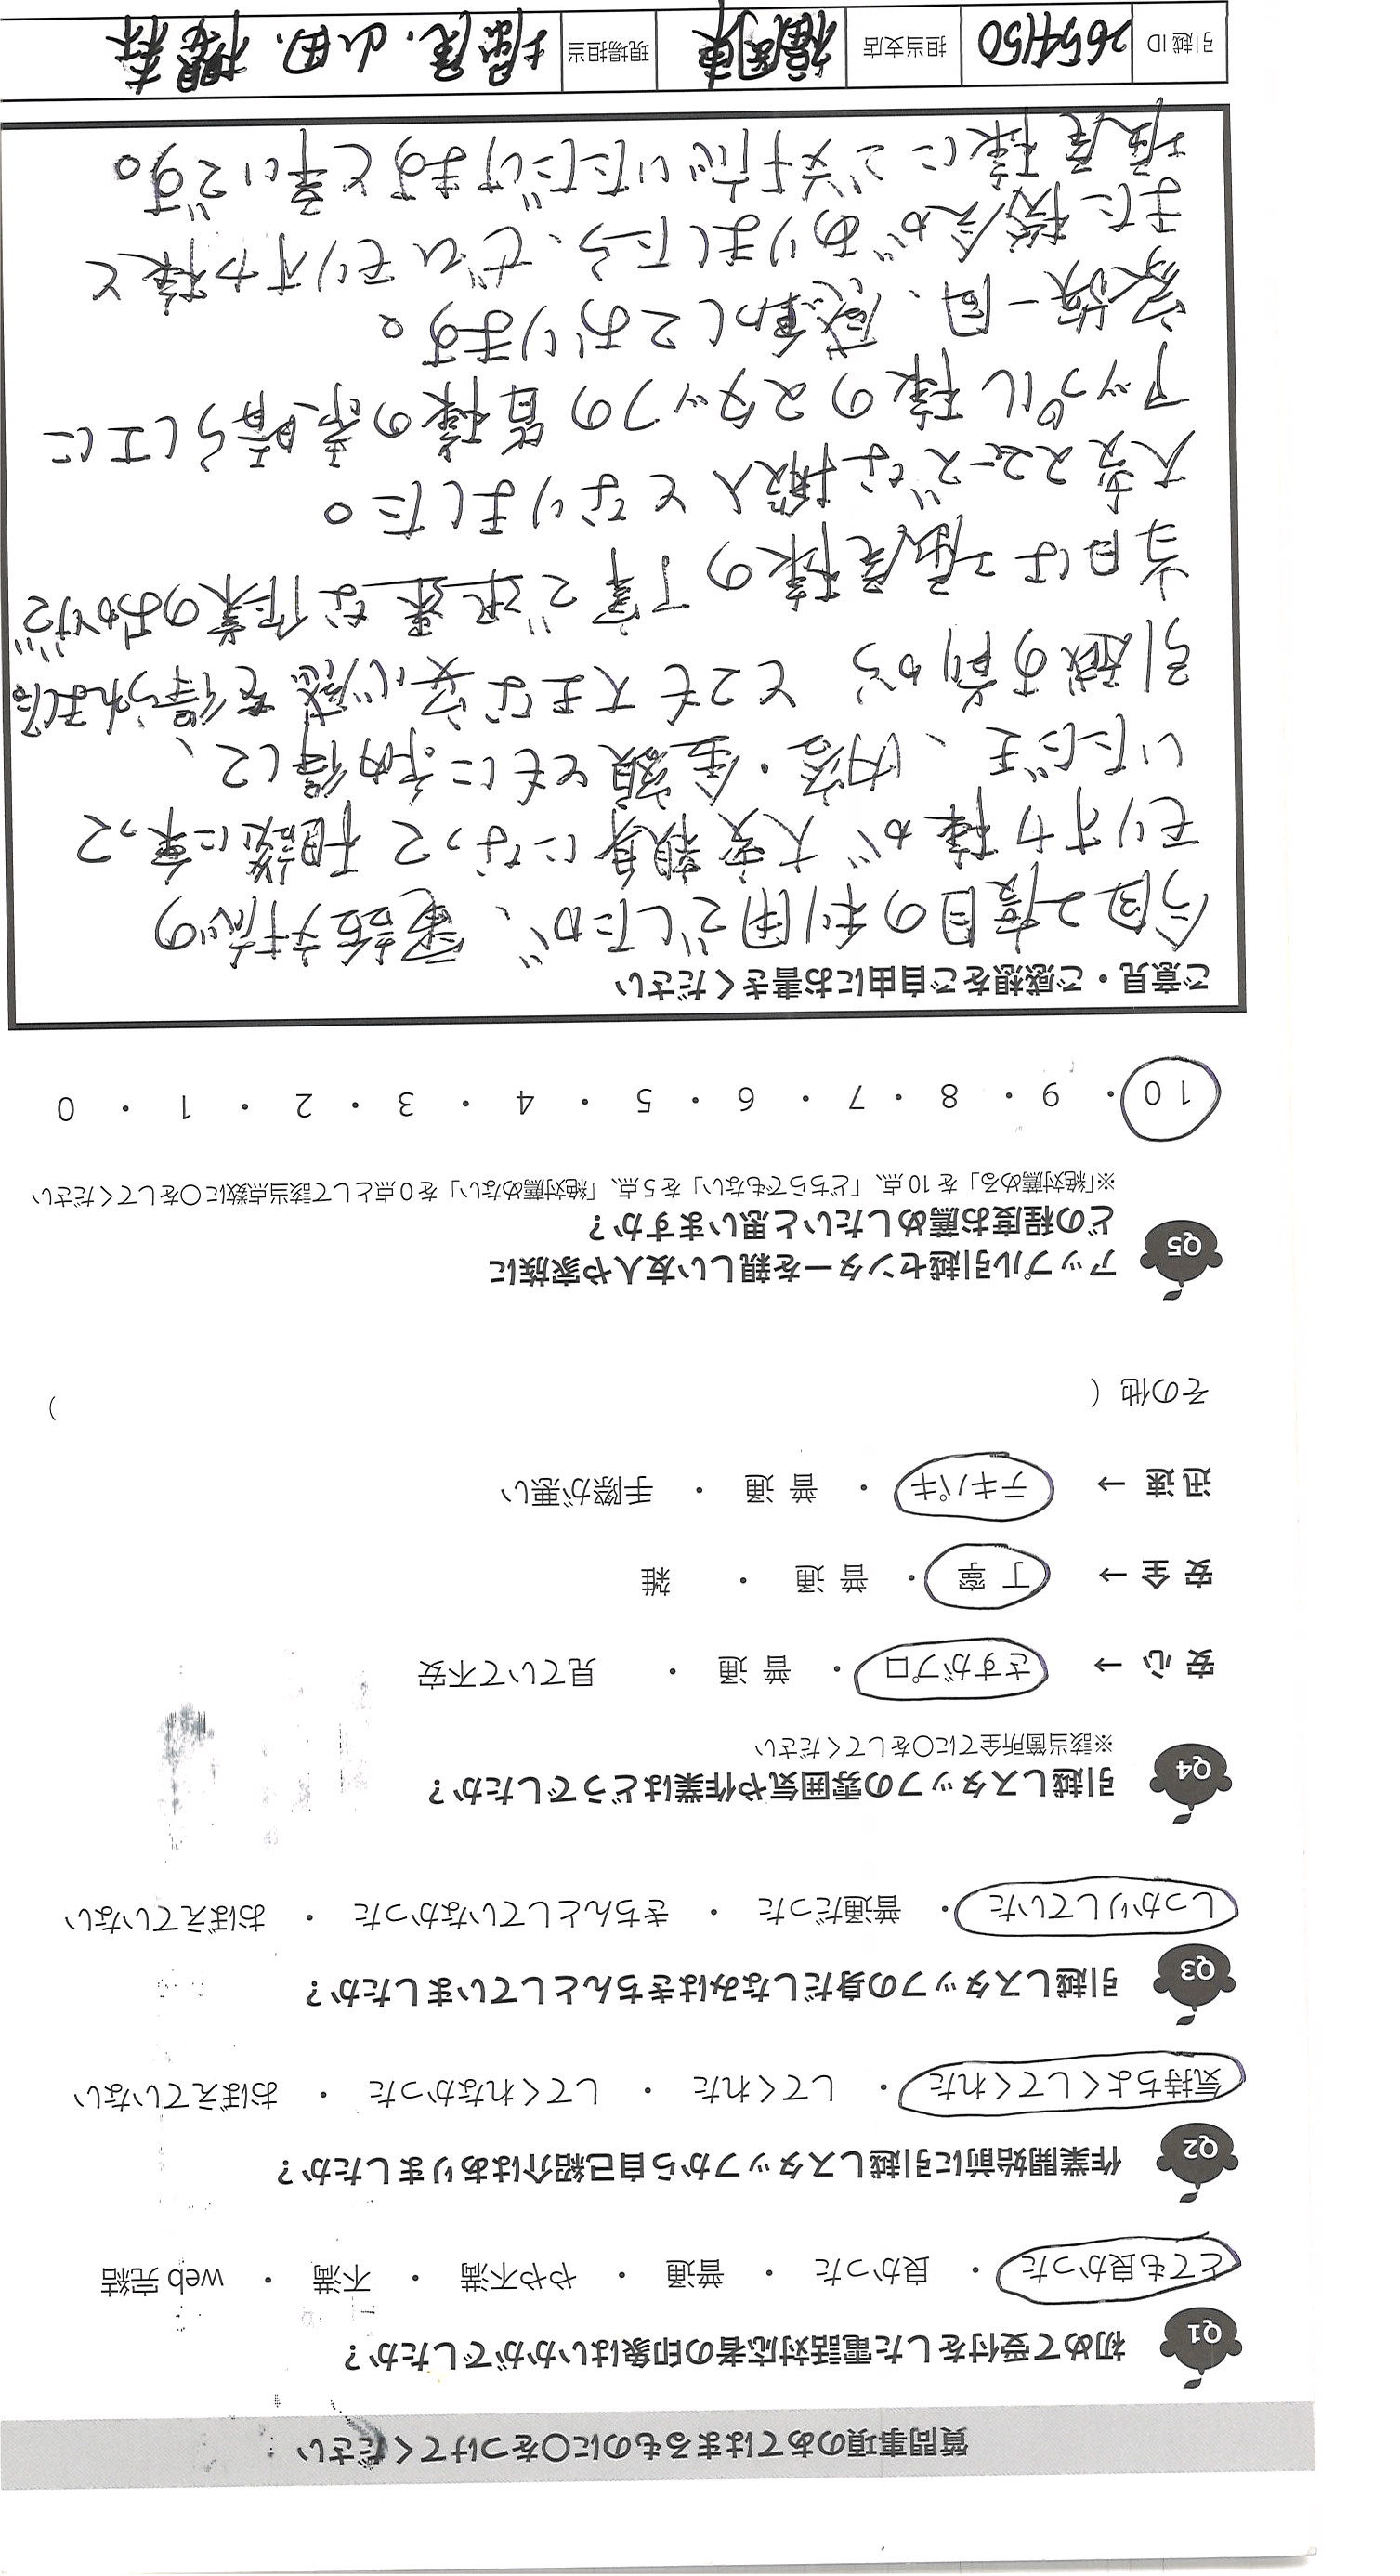 質問事項のあてはまるものに〇をつけてください
Q1 初めて受付をした電話対応者の印象はいかがでしたか？
とても良かった ・ 良かった ・ 普通 ・ やや不満 ・ 不満 ・ web完結
Q2 作業開始前に引越しスタッフから自己紹介はありましたか？
気持ちよくしてくれた ・ してくれた ・ してくれなかった ・ おぼえていない
Q3 引越しスタッフの身だしなみはきちんとしていましたか？
しっかりしていた ・ 普通だった ・ きちんとしていなかった ・ おぼえていない
Q4 引越しスタッフの雰囲気や作業はどうでしたか？
※該当箇所全てに〇をしてください
安心 → さすがプロ ・ 普通 ・ 見ていて不安
安全 → 丁寧 ・ 普通 ・ 雑
迅速 → テキパキ ・ 普通 ・ 手際が悪い
その他（ ）
Q5 アップル引越センターを親しい友人や家族に
どの程度お薦めしたいと思いますか？
※「絶対薦める」を10点、「どちらでもない」を5点、「絶対薦めない」を0点として該当点数に〇をしてください
10 ・ 9 ・ 8 ・ 7 ・ 6 ・ 5 ・ 4 ・ 3 ・ 2 ・ 1 ・ 0
ご意見・ご感想をご自由にお書きください
今回2度目の利用でしたが、電話対応の
モリオカ様が大変親身になって相談に乗って
いただき、内容・金額ともに納得して、
引越す前から とても大きな安心感を得られました。
当日は塩屋様の丁寧で迅速な作業のおかげで
大変スムーズな搬入となりました。
アップル様のスタッフの皆様の素晴らしさに
家族一同、感動しております。
また機会がありましたら、ぜひモリオカ様と
塩屋様にご対応いただけますと幸いです。
引越ID 2654150 担当支店 福岡東 現場担当 塩屋、山田、